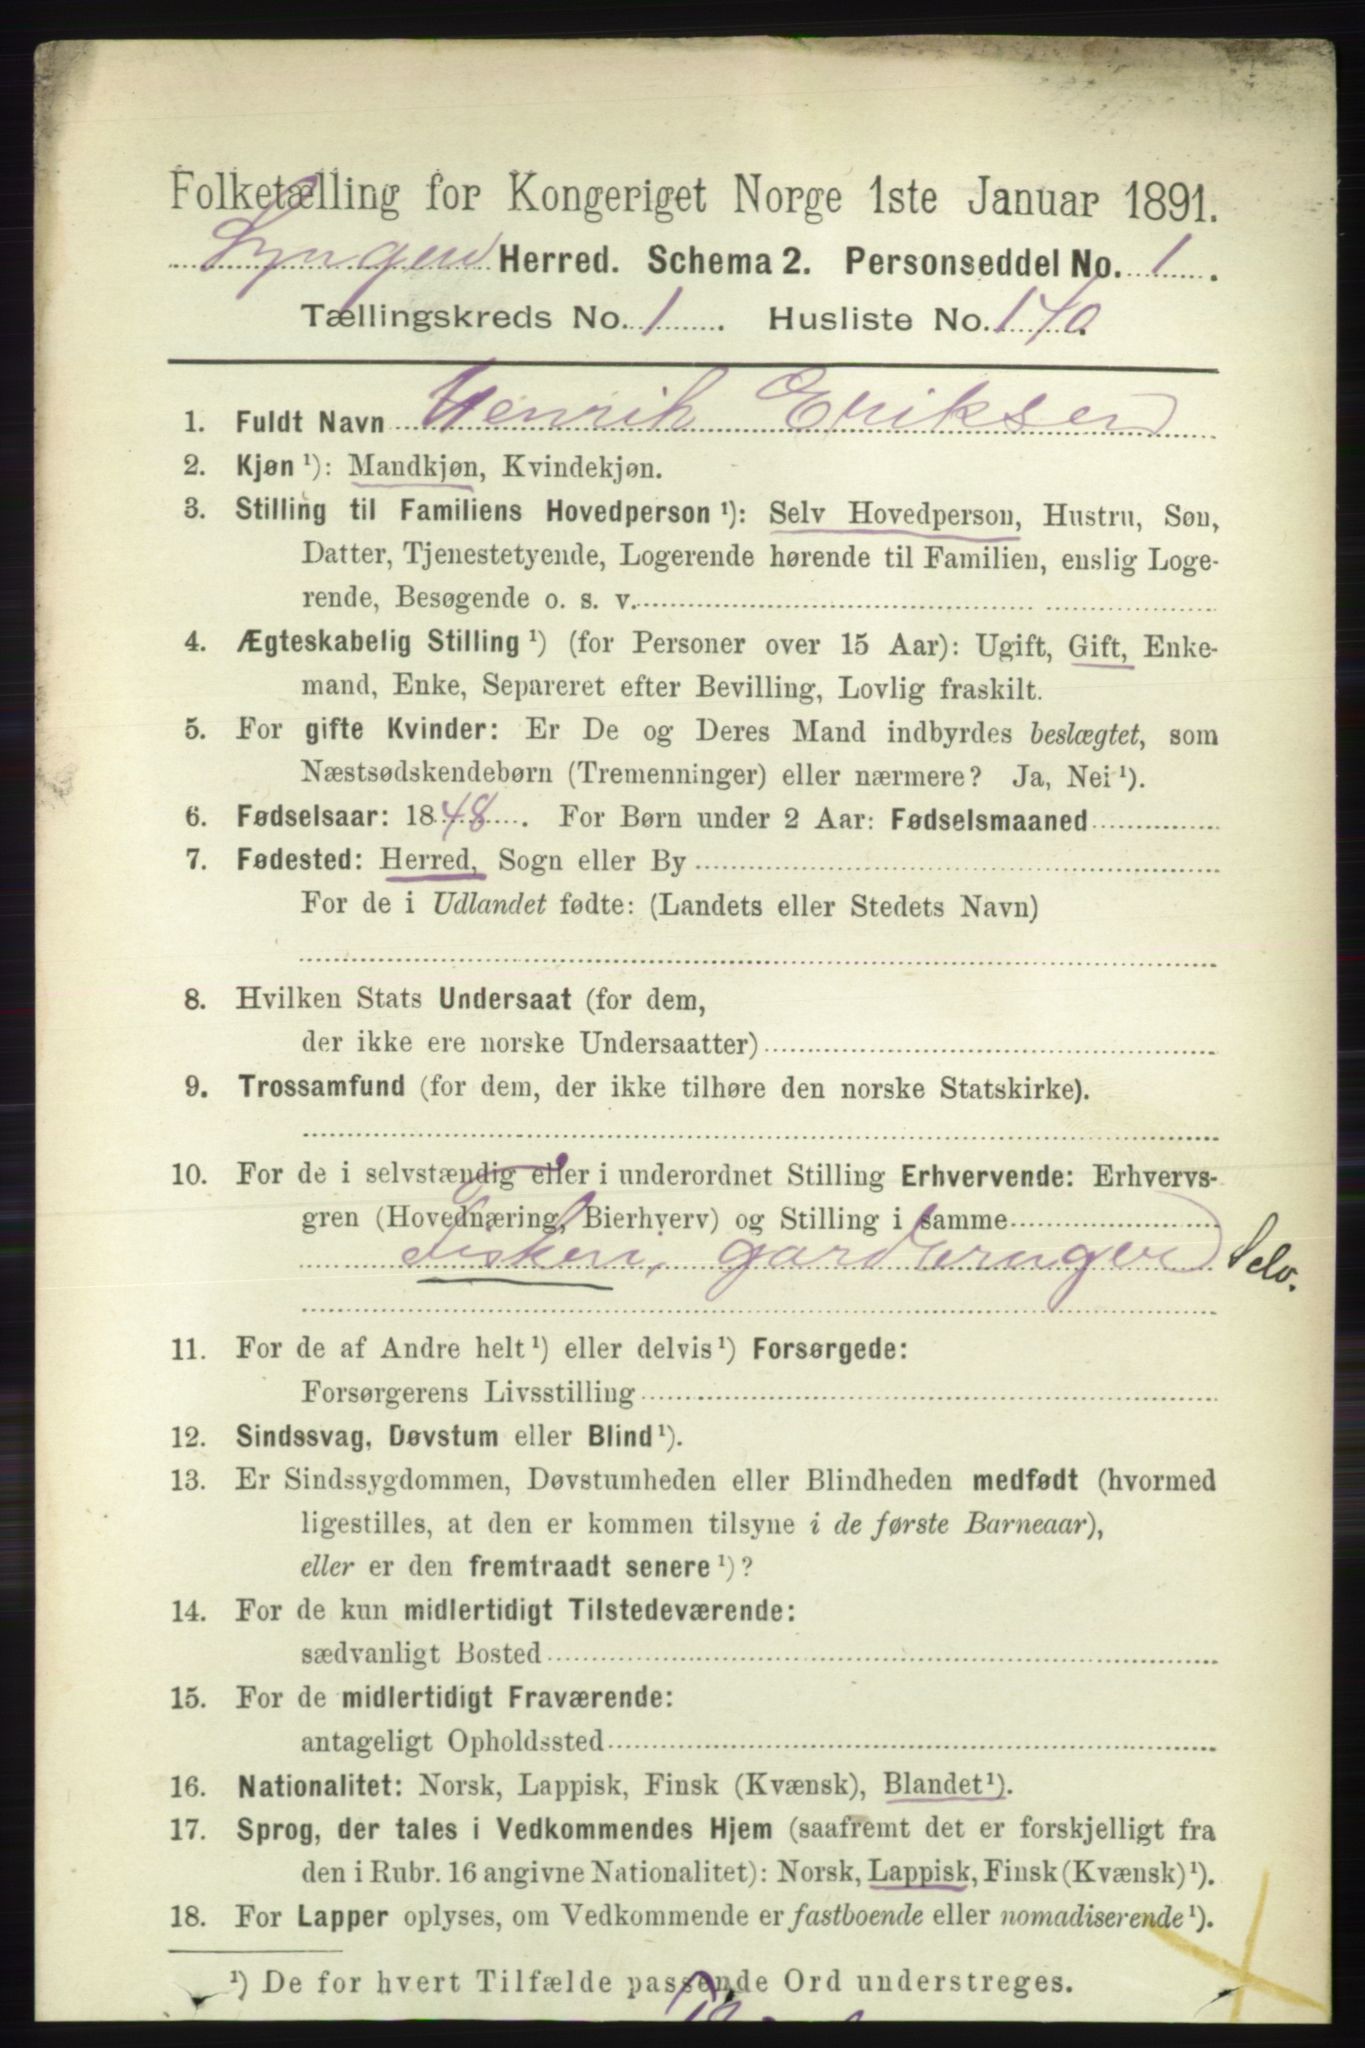 Folketælling for Kongeriget Norge 1ste Januar 1891.
Lyngen Herred. Schema 2. Personseddel No. 1.
Tællingskreds No. 1. Husliste No. 170.
1. Fuldt Navn Henrik Eriksen
2. Kjøn ¹): Mandkjøn, Kvindekjøn.
3. Stilling til Familiens Hovedperson ¹): Selv Hovedperson, Hustru, Søn,
Datter, Tjenestetyende, Logerende hørende til Familien, enslig Loge-
rende, Besøgende o. s. v.
4. Ægteskabelig Stilling ¹) (for Personer over 15 Aar): Ugift, Gift, Enke-
mand, Enke, Separeret efter Bevilling, Lovlig fraskilt.
5. For gifte Kvinder: Er De og Deres Mand indbyrdes beslægtet, som
Næstsødskendebørn (Tremenninger) eller nærmere? Ja, Nei ¹).
6. Fødselsaar: 1848. For Børn under 2 Aar: Fødselsmaaned
7. Fødested: Herred, Sogn eller By
For de i Udlandet fødte: (Landets eller Stedets Navn)
8. Hvilken Stats Undersaat (for dem,
der ikke ere norske Undersaatter)
9. Trossamfund (for dem, der ikke tilhøre den norske Statskirke).
10. For de i selvstændig eller i underordnet Stilling Erhvervende: Erhvervs-
gren (Hovednæring, Bierhverv) og Stilling i samme
Fiskeri, gardbruger Selv.
11. For de af Andre helt ¹) eller delvis ¹) Forsørgede:
Forsørgerens Livsstilling
12. Sindssvag, Døvstum eller Blind ¹).
13. Er Sindssygdommen, Døvstumheden eller Blindheden medfødt (hvormed
ligestilles, at den er kommen tilsyne i de første Barneaar),
eller er den fremtraadt senere ¹)?
14. For de kun midlertidigt Tilstedeværende:
sædvanligt Bosted
15. For de midlertidigt Fraværende:
antageligt Opholdssted
16. Nationalitet: Norsk, Lappisk, Finsk (Kvænsk), Blandet ¹).
17. Sprog, der tales i Vedkommendes Hjem (saafremt det er forskjelligt fra
den i Rubr. 16 angivne Nationalitet): Norsk, Lappisk, Finsk (Kvænsk) ¹).
18. For Lapper oplyses, om Vedkommende er fastboende eller nomadiserende ¹).
¹) De for hvert Tilfælde passende Ord understreges.